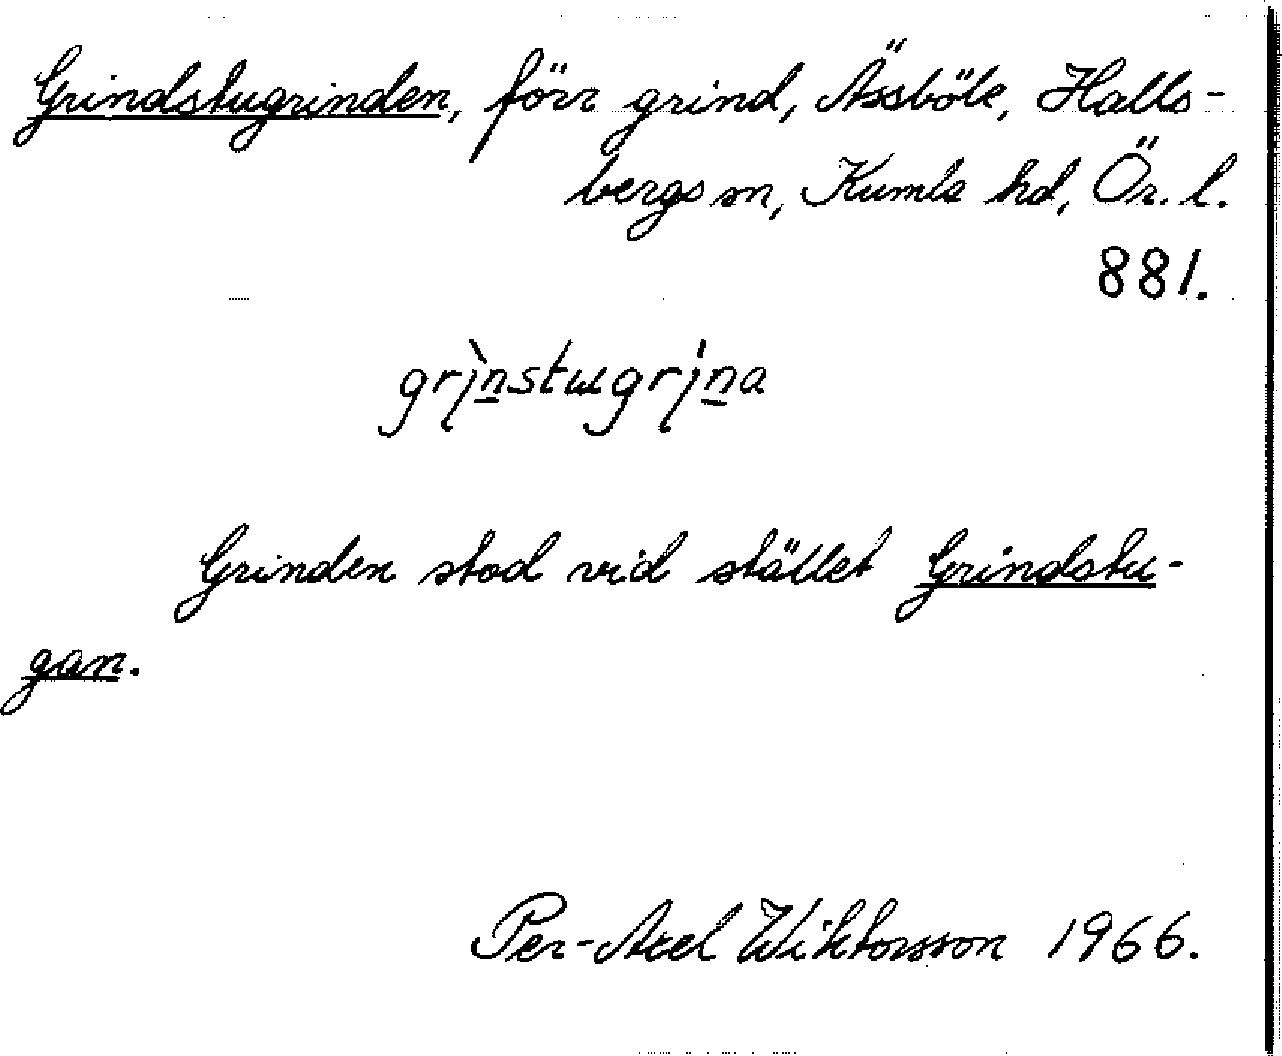 Grindstugrinden, förr grind, Ässböle, Halls-
bergs sn, Kumla hd, Ör. l.
881.
grìnstugrína
Grinden stod vid stället Grindstu-
gan.
Per-Axel Wiktorsson 1966.